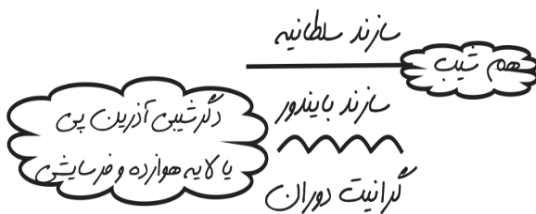 سازند سلطانیه
هم شیب
سازند بایندور
دگرشیبی آذرین پی
یا لایه هوازده و فرسایشی
گرانیت دوران